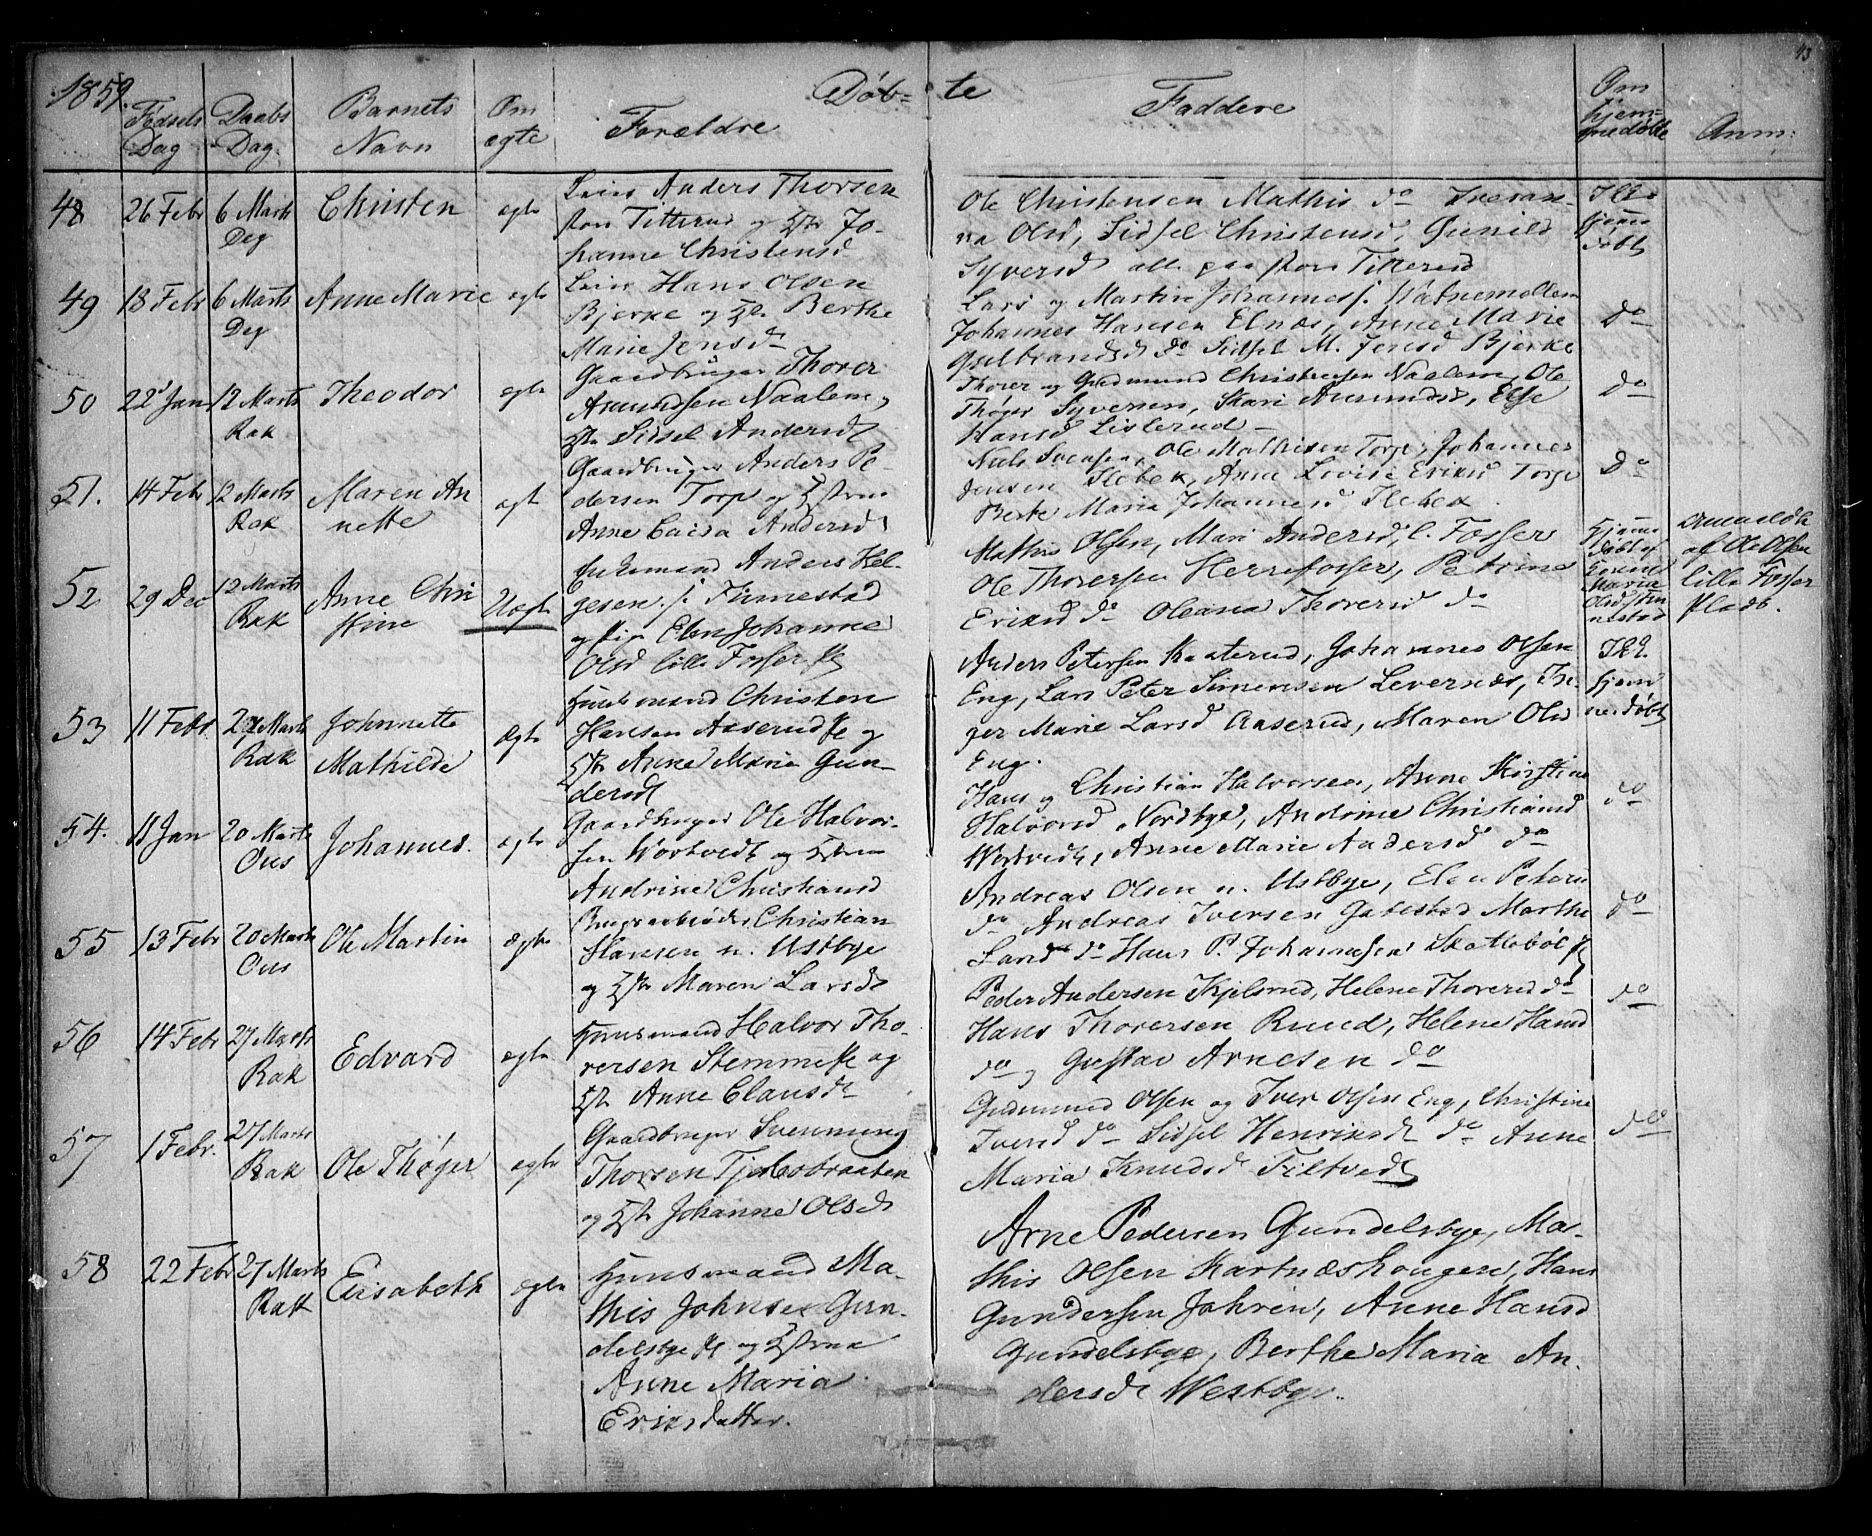 43
1859.
Døb-te
Fødsels Dag
Daabs Dag.
Barnets Navn
Om ægte
Forældre
Faddere
Om hjemmedøbte
Anm:
48 26 Febr 6 Marts Deg Christen ægte
Leier Anders Thorsen
stor Titterud og Hstr Jo-
hanne Christensd
Ole Christensen Mathis do
na Olsd, Sidsel Christensd, Gunild
Syversd alle paa stor Titterud
Ikke hjemme døbt
49 18 Febr 6 Marts Deg Anne Marie ægte
Leier Hans Olsen
Bjerke og Hst Berthe
Marie Jensd
Lars og Martin Johanness.
Johannes Hansen Elnæs, Anne Marie
Gulbrandsd do Sidsel M. Jensd Bjerke
do
50 22 Jan 12 Marts Rak Theodor ægte
Gaardbruger Thorer
Amundsen Naalem,
Hst Sidsel Andersd
Thorer og Gudmund Christensen Naalem, Ole
Thøger Syversen, Skari Amundsd, Else
Hansd Lislerud
do
51. 14 Febr 12 Marts Rak Maren Annette ægt
Gaardbruger Anders Pe-
dersen Torp og Hstrue
Anne Caisa Andersd
Niels Svensen, Ole Mathisen Torp, Johannes
Jensen Slebek, Anne Lovise Eriksd Torp
Berte Maria Johannesd Slebek
do
52 29 Dec 12 Marts Rak Anne Christine Uægt
Enkemand Anders Hel-
gesen s. Finnestad
og Pige Elen Johanne
Olsd lille Fosser
Mathis Olsen, Mari Andersd, l. Fosser
Ole Thoresen Herrefosser, Petrine
Eriksd do Oleana Thoresd do
hjemmedøbt af Maria Olsd Finnestad
anmeldt
af Ole Olsen
lille Fosser
Plads.
53 11 Febr 20 Marts Rak Johnette Mathilde Ægte
Huusmand Christen
Hansen Aaserud og
Hstr Anne Maria Gun-
dersd
Anders Petersen Kaaterud, Johannes Olsen
Eng, Lars Peter Simensen Levernæs, In-
ger Marie Larsd Aaserud, Maren Olsd
Eng.
Ikke hjemmedøbt
54. 11 Jan 20 Marts Ous Johannes. ægte
Gaardbruger Ole Halvor-
sen Wortvedt og Hstrue
Andrine Christiansd
Hans og Christian Halvorsen, Anne Kirstine
Halvorsd Nordbye, Andrine Christiansd
Wortvedt, Anne Marie Andersd do
do
55 13 Febr 20 Marts Ous Ole Martin Ægte
Brugsarbeider Christian
Hansen n. Ustbye
og Hstr Maren Larsd
Andreas Olsen n. Ustbye, Elen Peters
do Andreas Iversen Gabestad Marthe
Larsd do Hans P. Johannesen Skattebøl
do
56 14 Febr 27 Marts Rak Edvard ægte
Huusmand Halvor Tho-
rersen Stemme og
Hstr Anne Clausd
Peder Andersen Kjelsrud, Helene Thorersd do
Hans Thorersen Ruud, Helene Hansd
do og Gustav Arnesen do
do
57 1 Febr. 27 Marts Rak Ole Thøger ægte
Gaardbruger Svenning
Thorsen
og Hstr Johanne Olsd
Gudmund Olsen og Iver Olsen Eng, Christine
Iversd do Sidsel Henriksd do Anne
Maria Knudsd Tiltvedt
do
58 22 Febr 27 Marts Rak Elisabeth ægte
Huusmand Ma-
this Johnsen Gun-
delsbye og Hstrue
Anne Maria
Eriksdatter.
Arne Pedersen Gundelsbye, Ma-
this Olsen Kartnæshougen, Hans
Gundersen Jahren, Anne Hansd
Gundelsbye, Berthe Maria An-
dersd Westbye.